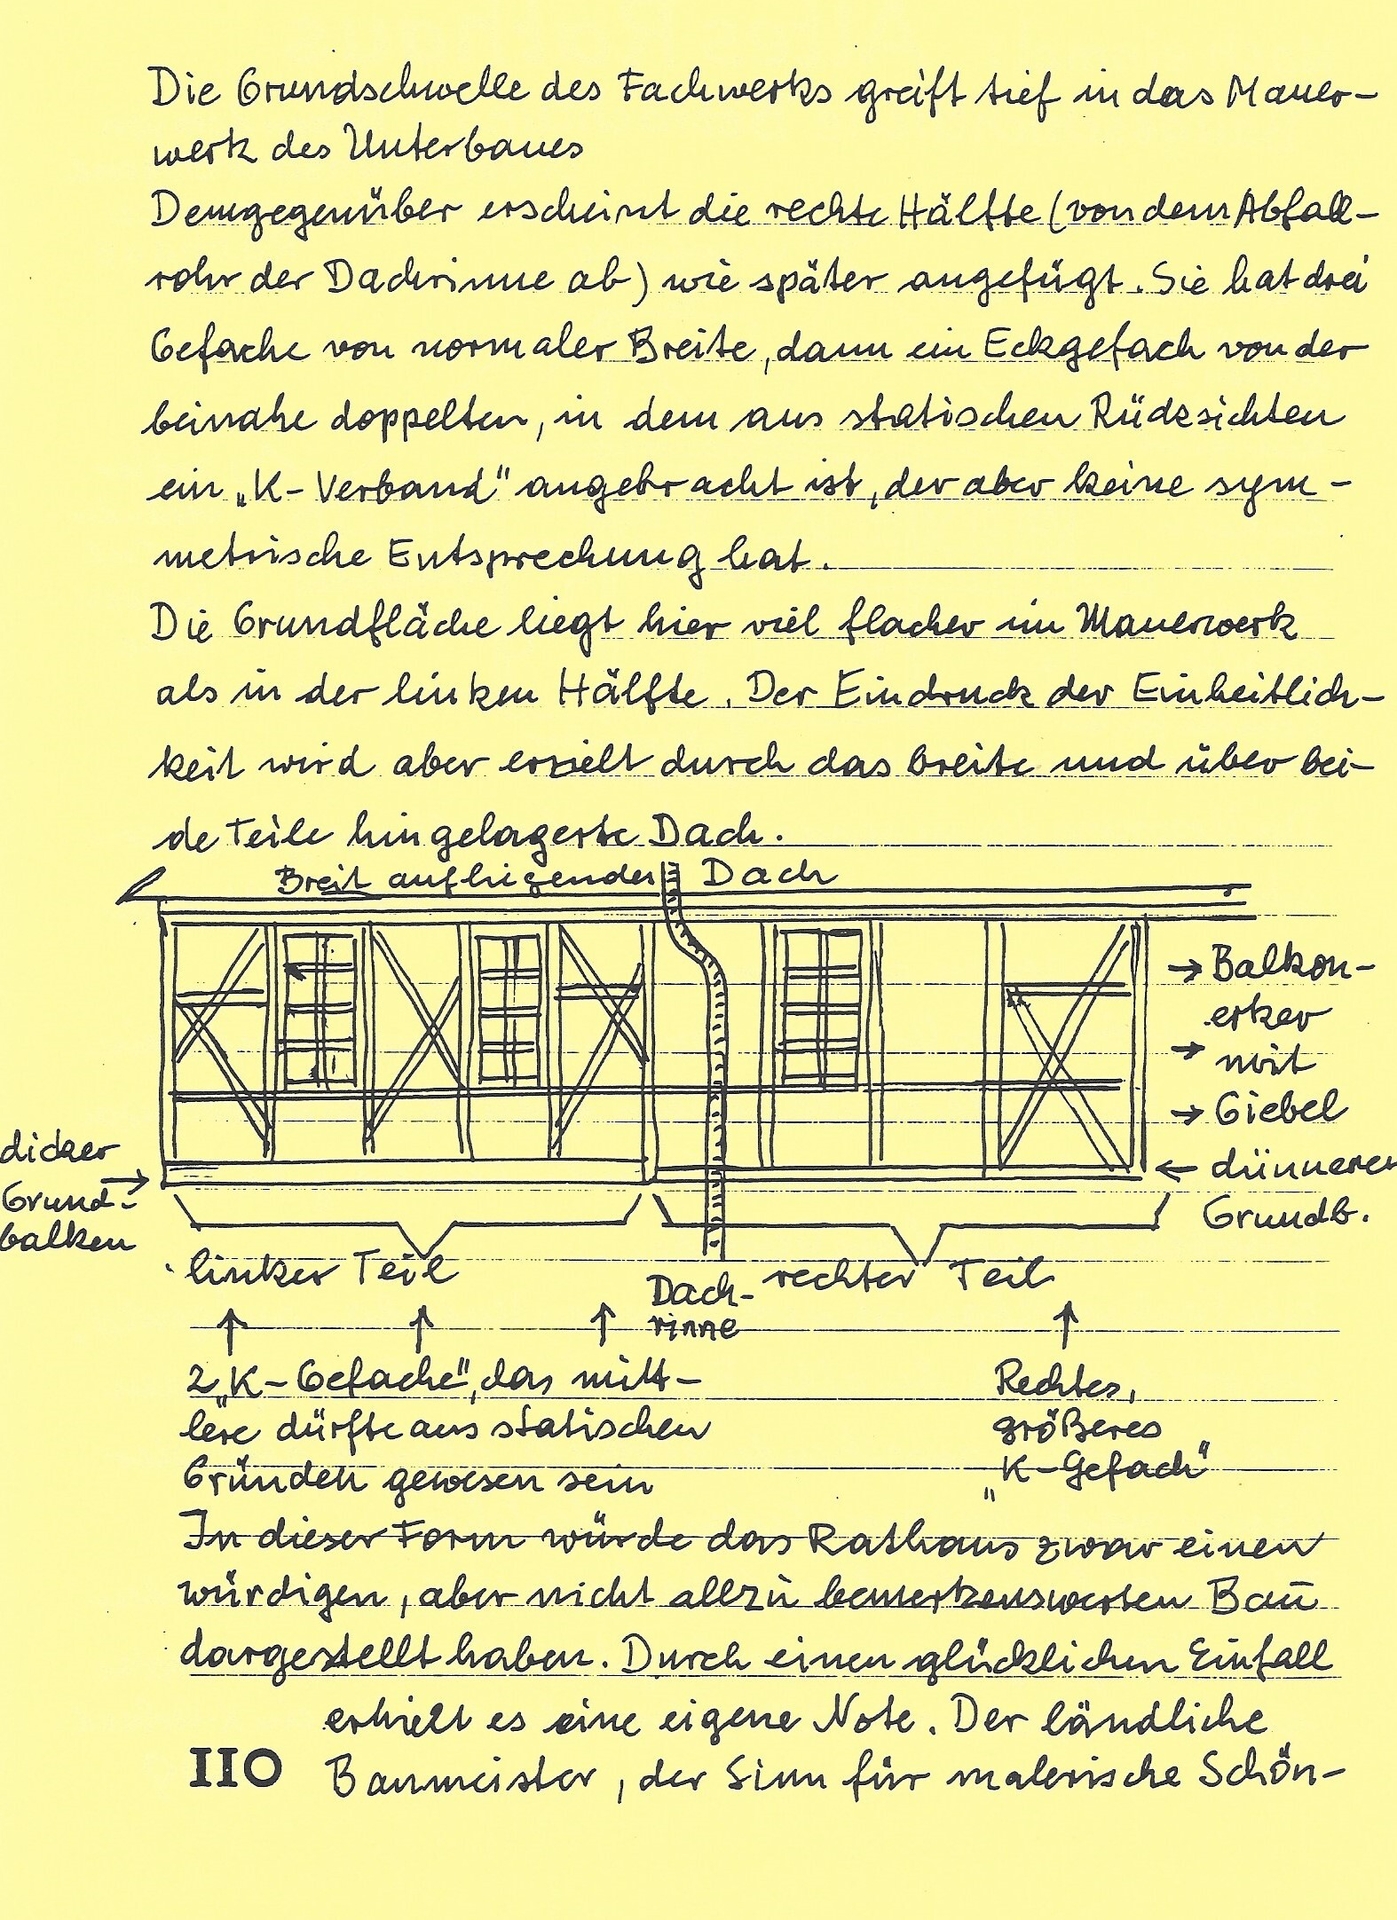 Die Grundschwelle des Fachwerks greift tief in das Mauer-
werk des Unterbaues
Demgegenüber erscheint die rechte Hälfte (von dem Abfall-
rohr der Dachrinne ab) wie später angefügt. Sie hat drei
Gefache von normaler Breite, dann ein Eckgefach von der
beinahe doppelten, in dem aus statischen Rücksichten
ein „K-Verband" angebracht ist, der aber keine sym-
metrische Entsprechung hat.
Die Grundfläche liegt hier viel flacher im Mauerwerk
als in der linken Hälfte. Der Eindruck der Einheitlich-
keit wird aber erzielt durch das breite und über bei-
de Teile hingelagerte Dach.
Breit aufliegendes Dach
→ Balkon-
erker
→ mit
→ Giebel
← dünnerer
Grundb.
dicker
Grund-
balken
linker Teil
Dach-
rinne
rechter Teil
2 „K-Gefache", das mitt-
lere dürfte aus statischen
Gründen gewesen sein
Rechtes,
größeres
„K-Gefach"
In dieser Form würde das Rathaus zwar einen
würdigen, aber nicht allzu bemerkenswerten Bau
dargestellt haben. Durch einen glücklichen Einfall
erhielt es eine eigene Note. Der ländliche
110 Baumeister, der Sinn für malerische Schön-